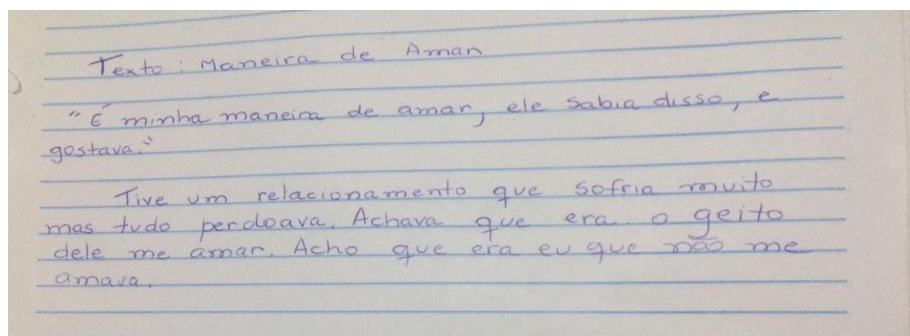 Texto: Maneira de Amar
"É minha maneira de amar, ele sabia disso, e
gostava."
Tive um relacionamento que sofria muito
mas tudo perdoava. Achava que era o geito
dele me amar. Acho que era eu que não me
amava.